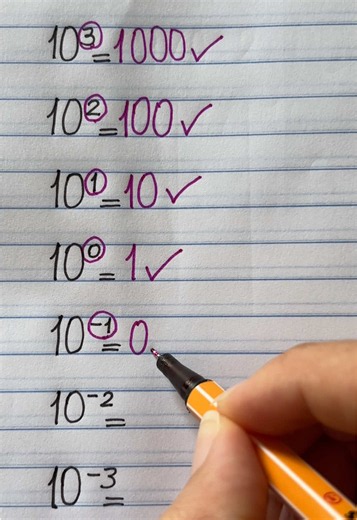 10³=1000✓
10²=100✓
10¹=10✓
10⁰=1✓
10⁻¹=0.
10⁻²=
10⁻³=